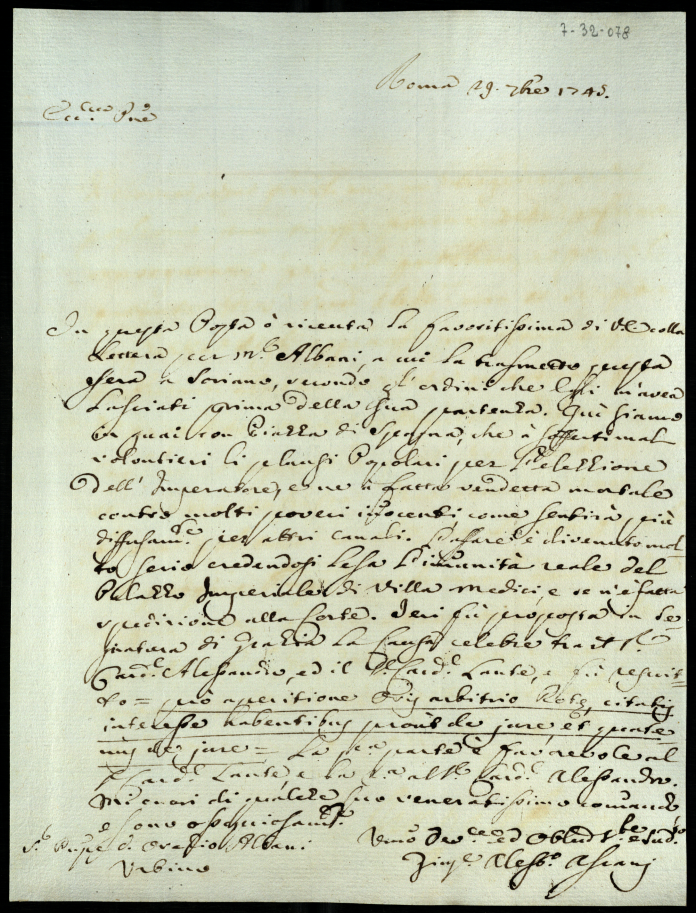 7-32-078
Roma 29. 7bre 1745.
Ecc.mo Pne
In questa Posta ò ricevuta la favoritissima di V.E. colla
lettera per M.r Albani, a cui la trasmetto questa
sera a Soriano, secondo gl'ordini che Egli m'avea
lasciati prima della sua partenza. Quì siamo
in guai con Piazza di Spagna, che à sofferti mal
volontieri li plausi Popolari per l'elezzione
dell'Imperatore, e ne à fatta vendetta mortale
contro molti poveri innocenti come sentirà più
diffusam.te per altri canali. L'affare è divenuto mol-
to serio credendosi lesa l'immunità reale del
Palazzo Imperiale di Villa Medici, e se n'è fatta
spedizione alla Corte. Ieri fù proposta in Se-
gnatura di Grazia la Causa celebre tra il S.r
Card.l Alessandro, ed il S.r Card.l Lante, e fù rescrit-
to = pro aperitione Oris arbitrio Rotae, citatis
interesse habentibus prout de jure, et quate
nus de jure = La p.a parte è favorevole al
S.r Card.l Lante, e la 2.a al S.r Card.l Alessandro.
Mi onori di qualche suo veneratissimo comando
e sono ossequiosam.te
S.r Prnpe D. Orazio Albani
Urbino
Umo Devmo ed Obblmo Ser.e